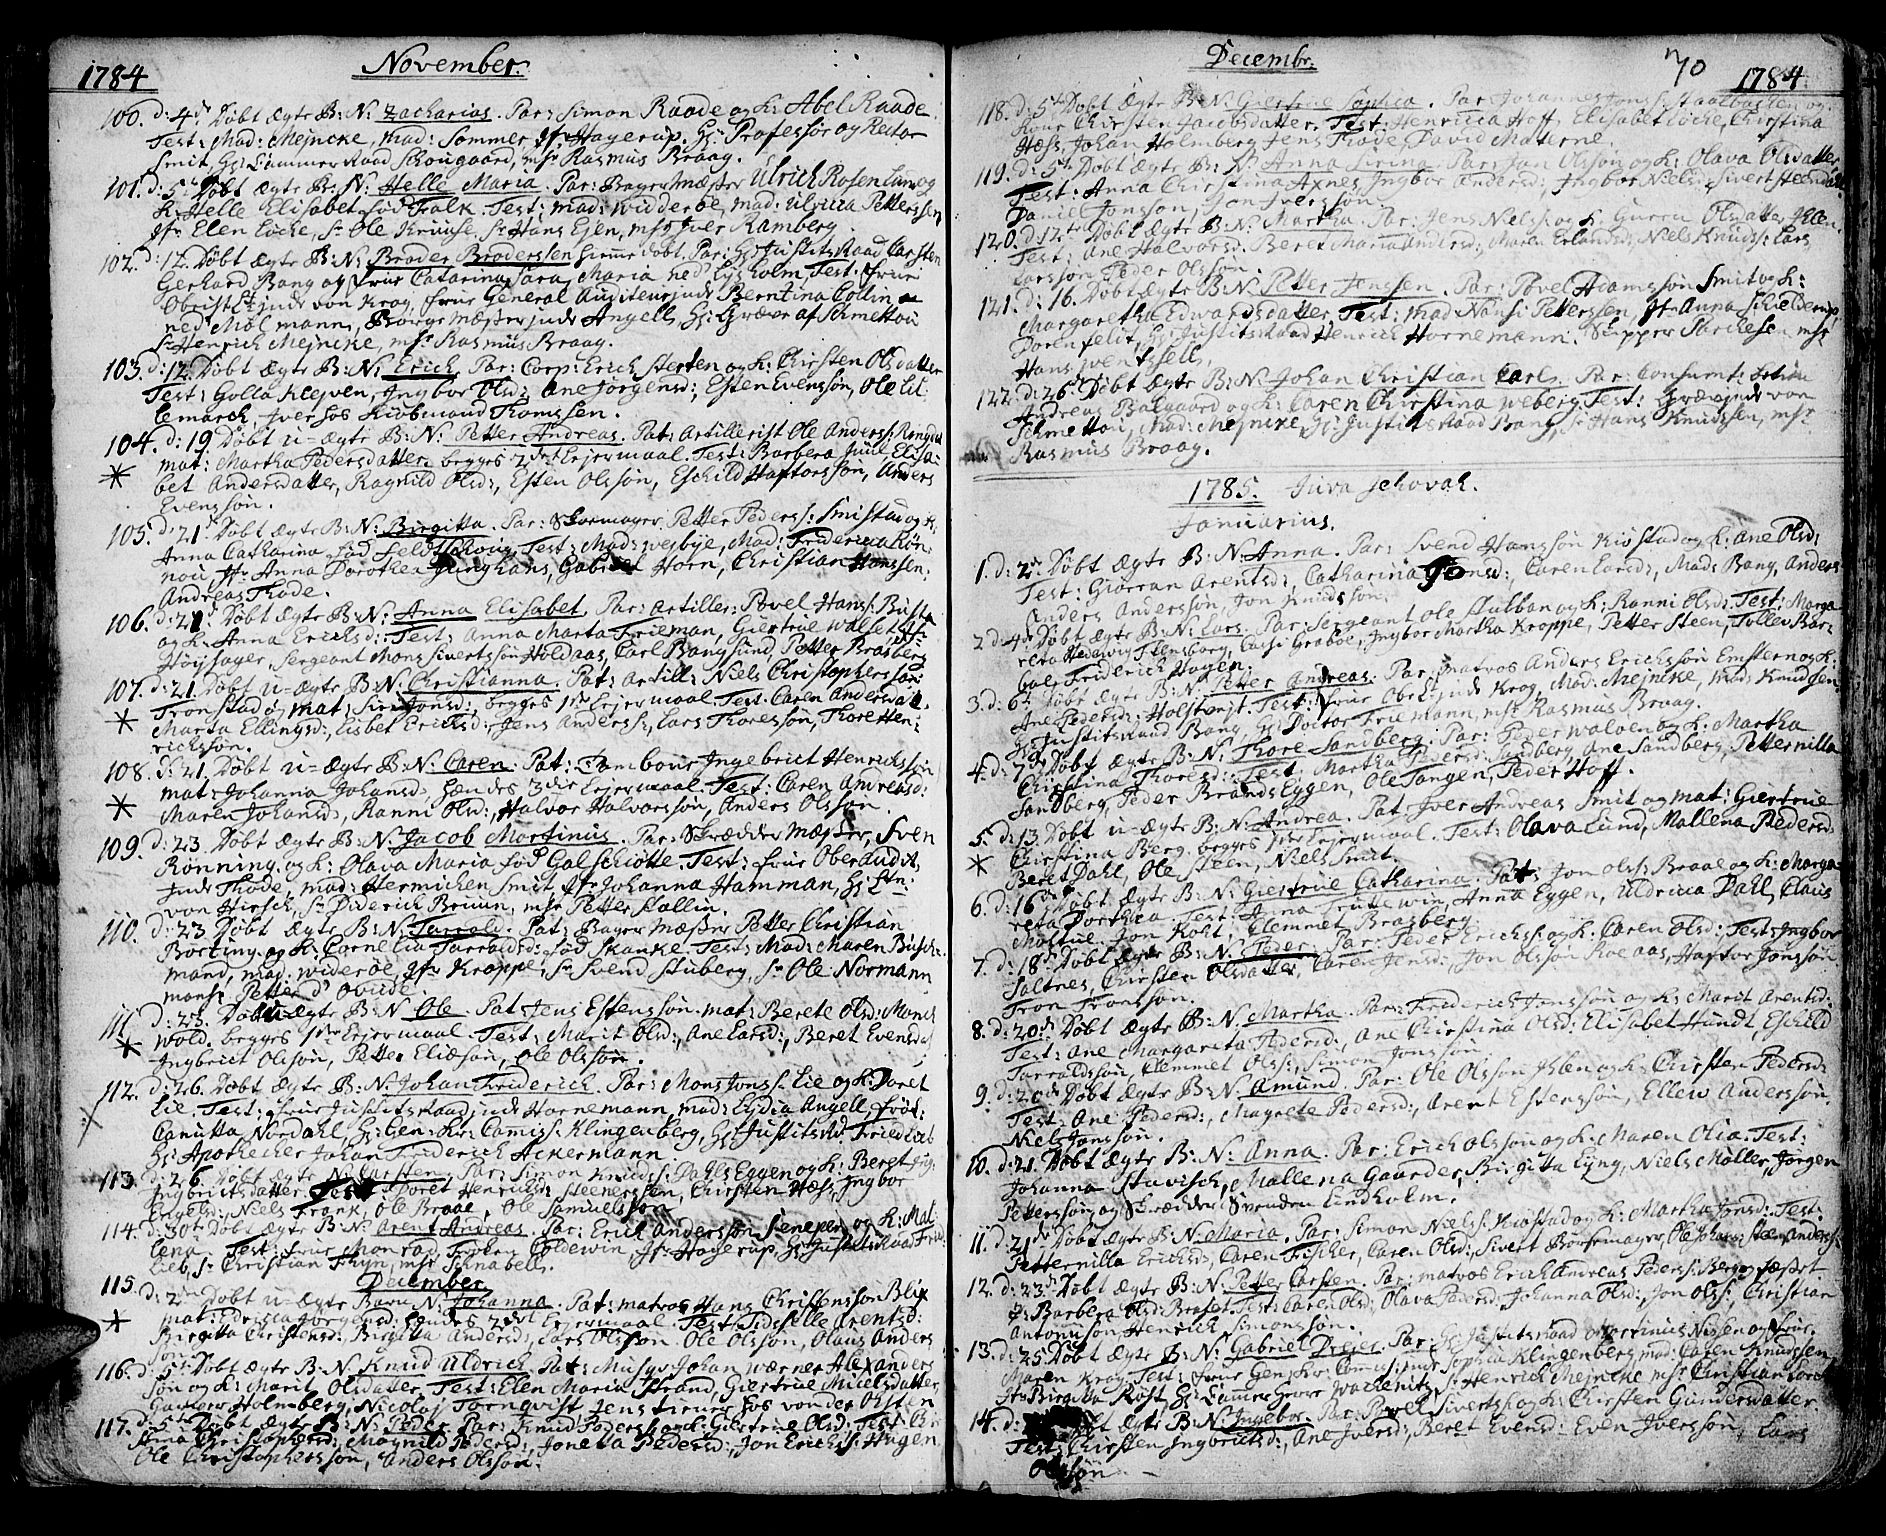 1784
November.
100. d: 4de Døbt Ægte B: N: Zacharias. Par: Simon Raade og H: Abel Raade
Test: Mad: Mejncke, Mad: Sommer, Jfr Hagerup, Hr: Professor og Rector
Smit, Hr: Cammer Raad Schougaard, msr Rasmus Braag.
101. d: 5te Døbt Ægte B: N: Helle Maria. Par: Bager Mæster Ulrich Rosenlam og
H: Helle Elisabet fød Falk. Test: Mad: Widderøe, Mad: Ulrica Pettersen
Jfr Elen Løcke, Sr Ole Kruuse, Sr Hans Egen, msr Iver Ramberg.
102. d: 12. Døbt Ægte B: N: Broder Brodersen hiemme døbt. Par: Hr: Justits Raad Carsten
Gerhard Bang og frue Catarina Sara Maria ned Lysholm. Test: frue
Obrist Ltjnde von Krog, frue General Auditeurjnde Berntina Collin
ned Møl mann, Borge Mæsterjnde Angell, Hr: Græve af Schmettou
Sr Henrich Mejncke, msr Rasmus Braag.
103. d: 12. Døbt Ægte B: N: Erich. Par: Corp: Erich Sterten og H: Chirsten Olsdatter
Test: Golla Klejven, Ingbor Olsd: Ane Jørgensd: Esten Evensøn, Ole Lil-
lemarck, Iver hos Kiøbmand Thomssen.
104. d: 19. Døbt u-Ægte B: N: Petter Andreas. Pat: Artillerist Ole Anderss:
mat: Martha Pedersdatter. begges 2det Lejermaal. Test: Barbera Juul, Elisa-
bet Andersdatter, Ragnild Olsd:, Esten Olssøn, Eschild Haftorsøn, Anders
Evensøn.
105. d: 21de Døbt Ægte B: N: Birgitta. Par: Skoemager Petter Peders: Smistad og H:
Anna Catharina fød Feldtschouw. Test: Mad: Wejbye, Mad: Friderica Røn-
nou, Jfr Anna Dorothea Junghans, Gabriel Horn, Christian Hanssen,
Andreas Thode.
106. d: 21. Døbt Ægte B: N: Anna Elisabet, Par: Artiller: Povel Hanss: Bustr
og H: Anna Ericksd: Test: Anna Marta Frieman, Giertrue Walset, Jfr
Høysager, Sergeant Mons Sivertsøn Holdaas, Carl Bangsund, Petter Brasberg
107. d: 21. Døbt u-Ægte B: N: Christianna. Pat: Artill: Niels Christophersøn
Fronstad, mat: Siri Jonsd:, begges 1ste Lejermaal. Test: Caren Andersdat:
Marta Ellingsd:, Lisbet Ericksd:, Jens Anderss:, Lars Thoresøn, Thore Hen-
richssøn.
108. d: 21. Døbt u-Ægte B: N: Caren. Pat: Tambour Ingebrict Henrichssøn
mat: Johanna Johansd:, hændes 3die Lejermaal. Test: Caren Andreasd:
Maren Johansd:, Ranni Olsd:, Halvor Halvorsøn, Anders Olssøn.
109. d: 23. Døbt Ægte B: N: Jacob Martinus. Par: Skrædder Mæster, Sven
Rønning, og H: Olava Maria fød Galschiøtte. Test: frue Oberaudit.
jnde Thode, mad: Hermichen Smit, Jfr Johanna Hamman, Hr: Ltn:
von Hirsch, Sr Diderich Bruun, msr Petter Collin.
110. d: 23. Døbt Ægte B: N: Tarrold. Pat: Bager Mæster Petter Christian
Borting, og H: Cornelia Tarraldsd: fød Skanke. Test: Mad: Maren Busch-
mand, mad: Widerøe, Jfr Kroppe, Sr Svend Stuberg, Sr Ole Normann
monsr Petter d' Obude.
111. d: 23. Døbt u-Ægte B: N: Ole. Pat: Jens Estensøn, mat: Berete Olsd: Monck
wold. begges 1ste Lejermaal. Test: Marit Olsd:, Ane Larsd:, Beret Evensd:
Ingbrict Olssøn, Petter Eliæsøn, Ole Olssøn.
112. d: 26. Døbt Ægte B: N: Johan Friderich. Par: Mons Jonss: Lie og H: Doret
Lie. Test: frue Justits Raad jnde Hornemann, mad: Lydia Angell, frøk:
Canutta Nordahl, Hr: Gen: Kr: Comiss: Klingenberg, Hr: Justits Rd Friedlieb
Hr: Apothecker Johan Friderich Ackermann.
113. d: 26. Døbt Ægte N: Carsten. Par: Simon Knudss: Dahls Eggen og H: Beret
Ingbrictsdatter. Test: Doret Henrichsd: Steenerssen, Chirsten Næss, Ingbor
Engelsd:, Niels Frank, Ole Braae, Ole Samuelssøn
114. d: 30te Døbt Ægte B: N: Arent Andreas. Par: Erick Andersøn Seneper, og H: Mal-
lena. Test: frue Monrad, frøken Coldewin, Jfr Hagerup, Hr: Justits Raad Fried-
lieb, Sr Christian Thyn, msr Schnabell.
December
115. d: 2den Døbt u-Ægte Barn N: Johanna. Pat: matros Hans Christenssøn Blix
mat: Jørgensd: hændes 2det Lejermaal. Test: Sidselle Arentsd:
Birgitta Christensd:, Birgitta Andersd:, Lars Olssøn, Ole Olssøn, Olaus Anders
søn.
116. d: 5te Døbt Ægte B: N: Knud Uldrich. Pat: Musqv: Johan Wærner Alexanders
søn og H: Marit Olsdatter. Test: Elen Maria Strand, Giertrue Micelsdatter,
Holmberg, Nicolaj Tørnqvist, Jens tiener hos von der Osten
117. d: 5te Døbt Ægte B: N: Peder. Par: Knud Pederss: og H: Giertrue Olsd: Test: Bir-
Christophersd:, Magnild Pedersd:, Joneta Pedersd:, Jon Erichs: Haugen
Ole Christophersøn, Anders Olssøn.
Decembr.
70
1784
118. d: 5te Døbt Ægte B: N: Giertrue Sophia. Par: Johannes Jonss: Staalbasten og
Kone Chirsten Jacobsdatter. Test: Henricca Hoff, Elisabet Løcke, Christina
Hæss, Johan Holmberg, Jens Thode, David Materne.
119. d: 5te Døbt Ægte B: N: Anna Sirina. Par: Jan Olssøn og H: Olava Olsdatter
Test: Anna Chirstina Axnes, Ingbor Andersd:, Ingbor Nielsd:, Sivert Steendahl
Daniel Jonsson, Jon Iverssøn.
120. d: 12te Døbt Ægte B: N: Martha. Par: Jens Niels: og H: Gurru Olsdatter
Test: Ane Halvorsd:, Beret Maria Andersd:, Maren Erlandsd:, Niels Knuds: Lars
Larssøn, Peder Olssøn.
121. d: 16. Døbt Ægte B: N: Petter Jenssen. Par: Povel Adamssøn Smit og H:
Margaretha Edwardsdatter. Test: mad Nansi Petterssen, Jfr Anna Schielderup,
Dorenfelt, Hr: Justits Raad Henrich Hornemann, Skipper Sørckesen, msr
Hans Wentssell.
122. d: 26de Døbt Ægte B: N: Johan Christian Carl. Par: Consumt:
Andreas Balgaard og H: Caren Christina Weberg. Test: Grævjnde von
Schmettou, Mad: Mejncke, Hr: Justits Raad Bang, Sr Hans Knudssen, msr
Rasmus Braag.
1785. Juva Jehovah.
Januarius.
1. d: 2den Døbt Ægte B: N: Anna. Par: Svend Hanssøn Kiøstad og H: Ane Olsd:
Test: Giørran Arentsd:, Catharina Jonsd:, Caren Larsd:, Mad: Bang, Anders
Anders Anderssøn, Jon Knudssøn.
2. d: 4de Døbt Ægte B: N: Lars. Par: Sergeant Ole Stulban og H: Ranni Olsd: Test: Marga
reta Hedewig Stensborg, Cassi Graboe, Ingbor Martha Kroppe, Petter Steen, Tollev Bar-
boe, Friderich Hagen.
3. d: 6te Døbt Ægte B: N: Petter Andreas. Par: Matros Anders Erickssøn Emstern og H:
Ane Pedersd: Holstvejt. Test: frue Oberstjnde Krog, Mad: Mejncke, Mad: Knudsen
Hr: Justitsraad Bang, Hr: Doctor Friemann, msr Rasmus Braag.
4. d: 7de Døbt Ægte B: N: Thore Sandberg. Par: Peder Waløen og H: Martha
Christina Thoresd: Test: Martha Pedersd: Sandberg, Ane Sandberg, Petternilla
Sandberg, Peder Brands Eggen, Ole Tangen, Peder Hoff.
5. d: 13. Døbt u-Ægte B: N: Andrea. Pat: Iver Andreas Smit og mat: Giertrue
Christina Berg. begges 1ste Lejermaal. Test: Olava Lund, Mallena Pedersd:
Beret Dahl, Ole Steen, Niels Smit.
6. d: 16de Døbt Ægte B: N: Giertrue Catharina. Pat: Jon Olss: Braae og H: Marga-
reta Dorthea. Test: Anna Trutewin, Anna Eggen, Uldrica Dahl, Claus
Mostue, Jon Koht, Clemmet Brasberg.
7. d: 18de Døbt Ægte B: N: Peder. Par: Peder Ericks: og H: Caren Olsd: Test: Ingbor
Saltnes, Chirsten Olsdatter, Caren Jensd:, Jon Olssøn Roeaas, Haftor Jonssøn
Tron Tronssøn.
8. d: 20de Døbt Ægte B: N: Martha. Par: Friderich Jenssøn og H: Marit Arentsd:
Test: Ane Margareta Pedersd:, Ane Christina Olsd: Elisabet Hundt, Eschild
Tarraldssøn, Clemmet Olss:, Simon Jonssøn.
9. d: 20de Døbt Ægte B: N: Amund. Par: Ole Olssøn Islen og H: Chirsten Pedersd:
Test: Ane Pedersd:, Magrete Pedersd:, Arent Estenssøn, Ellew Anderssøn.
Niels Jonssøn.
10. d: 21. Døbt Ægte B: N: Anna. Par: Erick Olssøn og H: Maren Olia. Test:
Johanna Stavisch, Mallena Gaarder, Birgitta Lyng, Niels Møller, Jørgen
Petterssøn og Skrædder Svenden Lindholm.
11. d: 21de Døbt Ægte B: N: Maria. Par: Simon Nielss: Kiøstad og H: Martha Jonsd: Test:
Petternilla Ericksd:, Caren Fischer, Caren Olsd:, Sivert Børsemager, Ole Johans: Steen Anders:
12. d: 23de Døbt Ægte B: N: Petter Carsten. Par: matros Erich Andreas Peders: Berg og fæstet
P: Barbera Olsd: Braset. Test: Caren Olsd:, Olava Pedersd:, Johanna Olsd:, Jon Olss:, Christian
Antonisøn, Henrich Simonssøn.
13. d: 25 Døbt Ægte B: N: Gabriel Drejer. Par: Hr: Justitsraad Mortinus Nissen og frue
Maren Krog. Test: frue Gen: Kr: Comiss: jnde Sophia Klingenberg, mad: Caren Knudssen
Jfr Birgitta Rost, Hr: Cammer Herre Wackenitz, Sr Henrich Mejncke, msr Christian Lorck
14. d: Døbt Ægte B: N: Ingebor. Par: Povel Sivertss: og H: Chirsten Gundersdatter.
Test: Chirsten Ingbrictsd:, Ane Iversd:, Beret Evensd: Even Iverssøn, Lars
Olssøn.